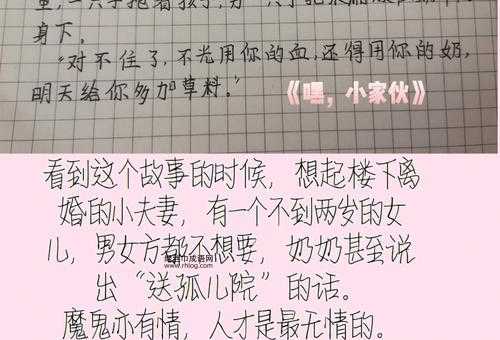 童，一只手抱着孩子，另一只手
身下。
“对不住了，不光用你的血，还得用你的奶，
明天给你多加草料。”
《嘿，小家伙》
看到这个故事的时候，想起楼下离
婚的小夫妻，有一个不到两岁的女
儿，男女方都不想要，奶奶甚至说
出“送孤儿院”的话。
魔鬼亦有情，人才是最无情的。
www.rhlog.com